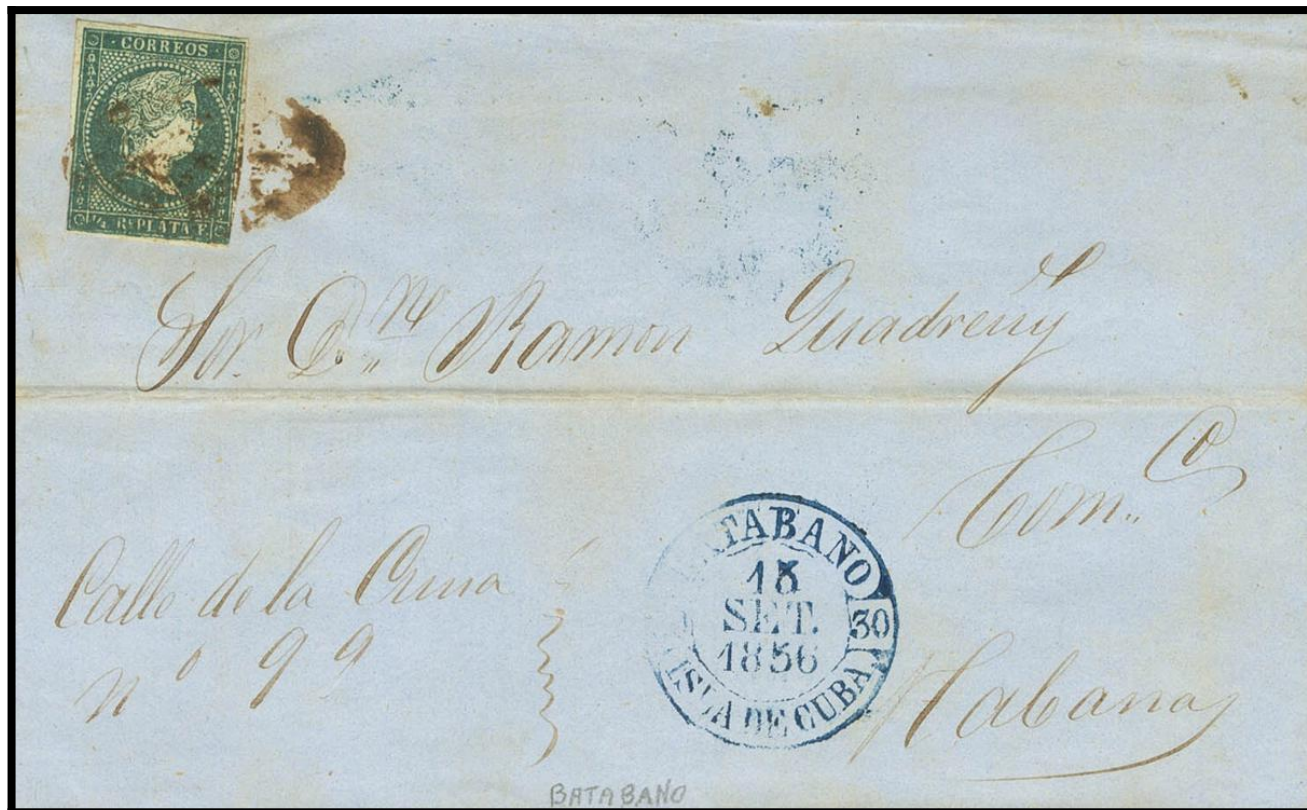 CORREOS
½ Rl PLATA F.
Sor. Dn. Dn Ramon Quadreny
Comco
Calle de la Cuna
no 99
BATABANO
15
SET.
1856
30
ISLA DE CUBA
Habana
BATABANO